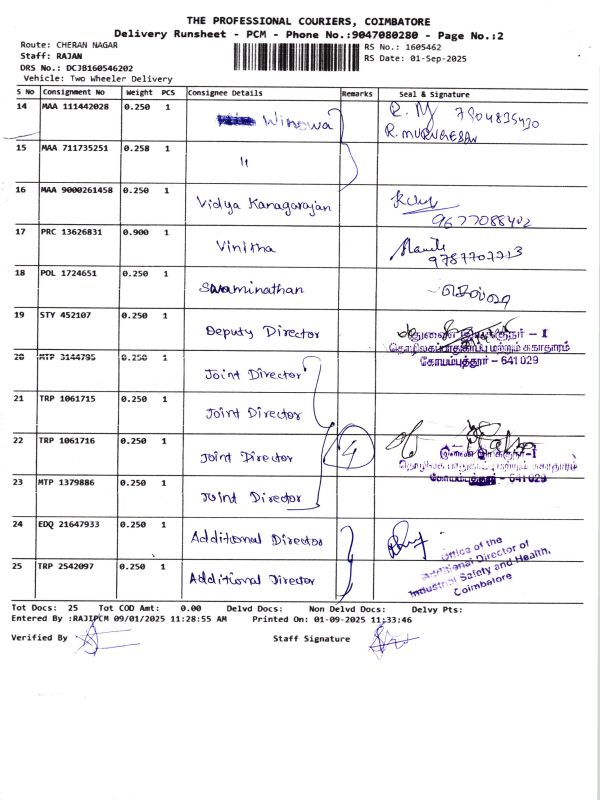 THE PROFESSIONAL COURIERS, COIMBATORE
Delivery Runsheet - PCM - Phone No.:9047080280 - Page No.:2
Route: CHERAN NAGAR
RS No.: 1605462
Staff: RAJAN
RS Date: 01-Sep-2025
DRS No.: DCJB160546202
Vehicle: Two Wheeler Delivery
S No Consignment No Weight PCS Consignee Details Remarks Seal & Signature
14 MAA 111442028 0.250 1 Winowa R. M 7904835430
R. MURUGESAN
15 MAA 711735251 0.258 1 "
16 MAA 9000261458 0.250 1 Vidya Kanagarajan
9677088402
17 PRC 13626831 0.900 1 Vinitha
9787707713
18 POL 1724651 0.250 1 Swaminathan
19 STY 452107 0.250 1 Deputy Director துணை இயக்குநர் - I
தொழிலகப்பாதுகாப்பு மற்றும் சுகாதாரம்
கோயம்புத்தூர் - 641 029
20 MTP 3144795 0.250 1 Joint Director
21 TRP 1061715 0.250 1 Joint Director
22 TRP 1061716 0.250 1 Joint Director 4 இணை இயக்குநர்-I
தொழிலக பாதுகாப்பு மற்றும் சுகாதாரம்
கோயம்புத்தூர் - 641 029
23 MTP 1379886 0.250 1 Joint Director
24 EDQ 21647933 0.250 1 Additional Director
Office of the
Additional Director of
Industrial Safety and Health,
Coimbatore
25 TRP 2542097 0.250 1 Additional Director
Tot Docs: 25 Tot COD Amt: 0.00 Delvd Docs: Non Delvd Docs: Delvy Pts:
Entered By :RAJIPCM 09/01/2025 11:28:55 AM Printed On: 01-09-2025 11:33:46
Verified By Staff Signature